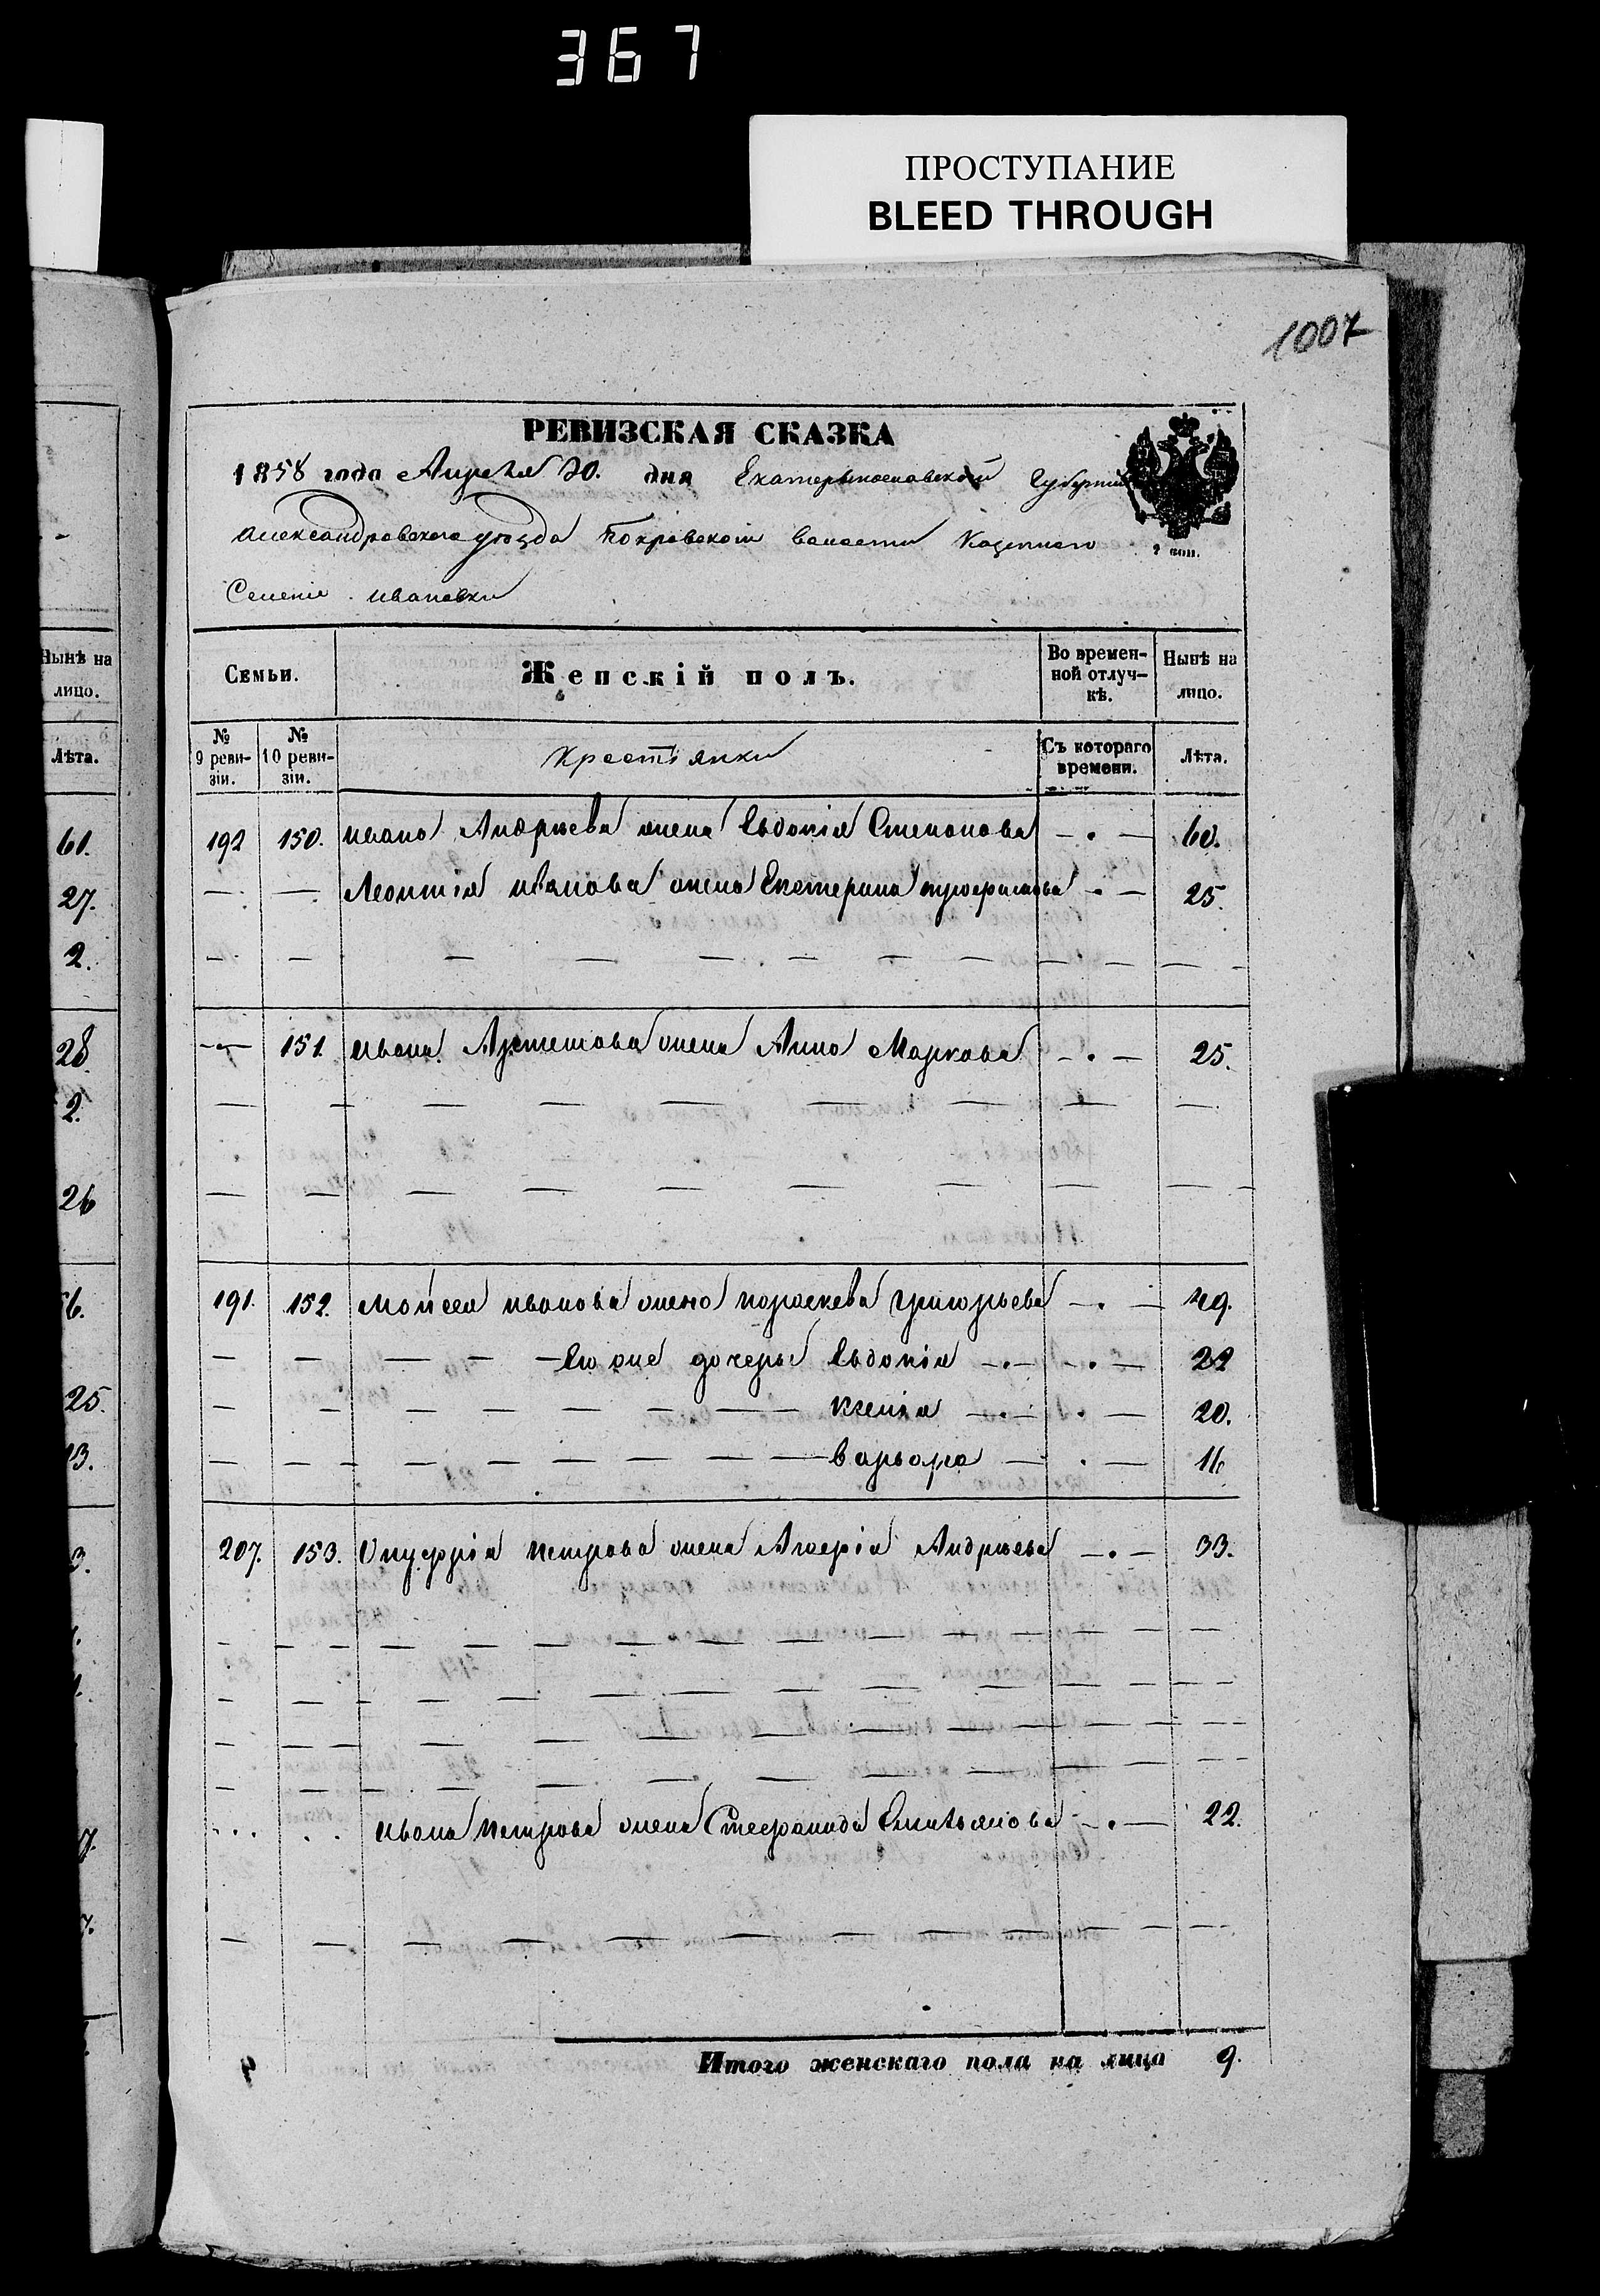 367
ПРОСТУПАНИЕ
BLEED THROUGH
1007
РЕВИЗСКАЯ СКАЗКА
1858 года Апреля 30. дня Екатеринославской Губернии
Александровского уезда Покровской волости Казенного
2 коп.
Селенія Ивановки
Нынѣ на лицо.
Семьи.
Женскій полъ.
Во временной отлучкѣ.
Нынѣ на лицо.
Лѣта.
№ 9 ревизіи.
№ 10 ревизіи.
Крестьянки
Съ котораго времени.
Лѣта.
61.
192 150. Ивана Андрѣева жена Евдокія Степанова 60.
27.
Леонтія Иванова жена Екатерина 25.
2.
28.
151. Ивана Артемова жена Анна Маркова 25.
2.
26
191. 152. Мойсея Иванова жена Параскева Григорьева 49.
Его же дочеры Евдокія 22
25.
Ксенія 20.
13.
Варвара 16
207. 153. Онуфрія Петрова жена Андрѣева 33.
Ивана Петрова жена Стефанида Емильянова 22.
Итого женскаго пола на лицо 9.